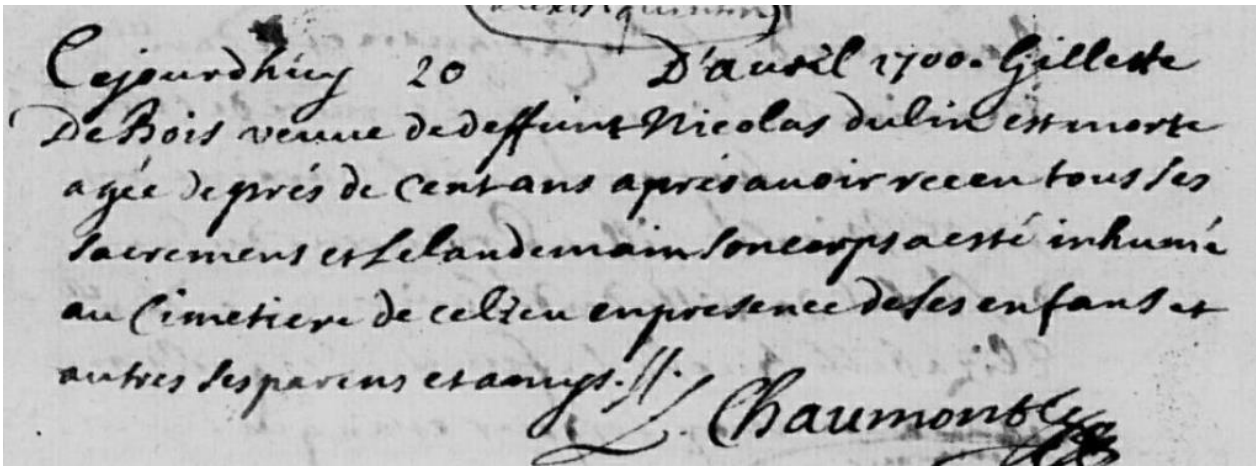 Cejourdhuy 20 D'auril 1700. Gillette
De Bois veuue de deffunt Nicolas dulin est morte
agée de prés de Cent ans apres auoir receu tous ses
sacremens et le landemain son corps a esté inhumé
au Cimetiere de ce lieu en presence de ses enfans et
autres ses parens et amys.
L. Chaumont